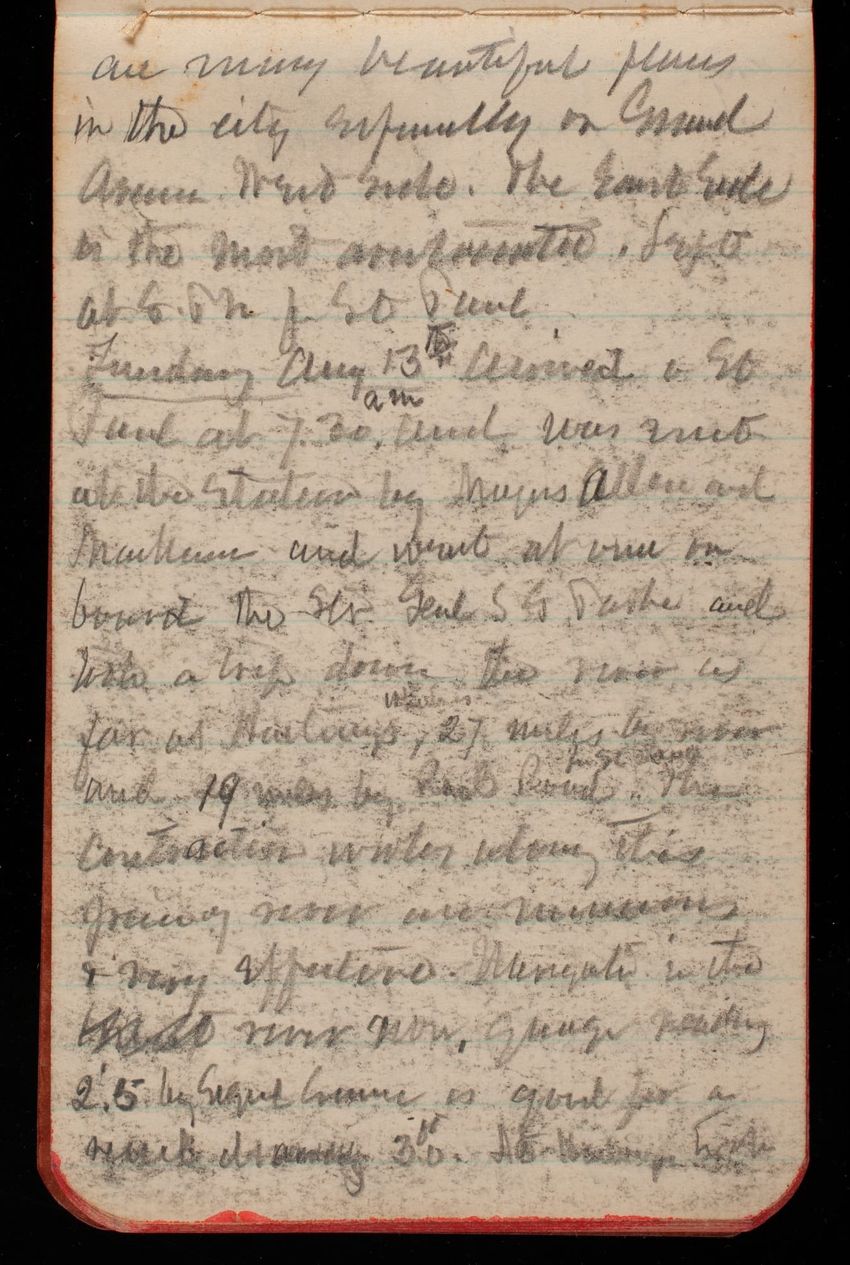 are many beautiful places
in the city especially on Grand
Avenue West Side. The East Side
is the most aristocratic. Left
at 6. P.M. for St Paul
Sunday Aug 13th Arrived at St
Paul at 7.30. am and was met
at the Station by Majors Allen and
and went at once on
board the Str Genl and
took a trip down the river as
far as Hastings, 27 miles by river
and 19 miles by Rail Road. The
Contraction works along this
of river are numerous
& very effective. Navigation in the
river now, guage reading
2'.5 by is good for a
drawing 3.0. At Hastings